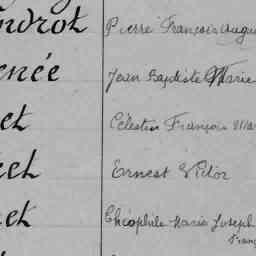 ndrot Pierre François Augu
enée Jean Baptiste Marie
et Célestin François Mar
et Ernest Victor
et Théophile Marie Joseph
Franç